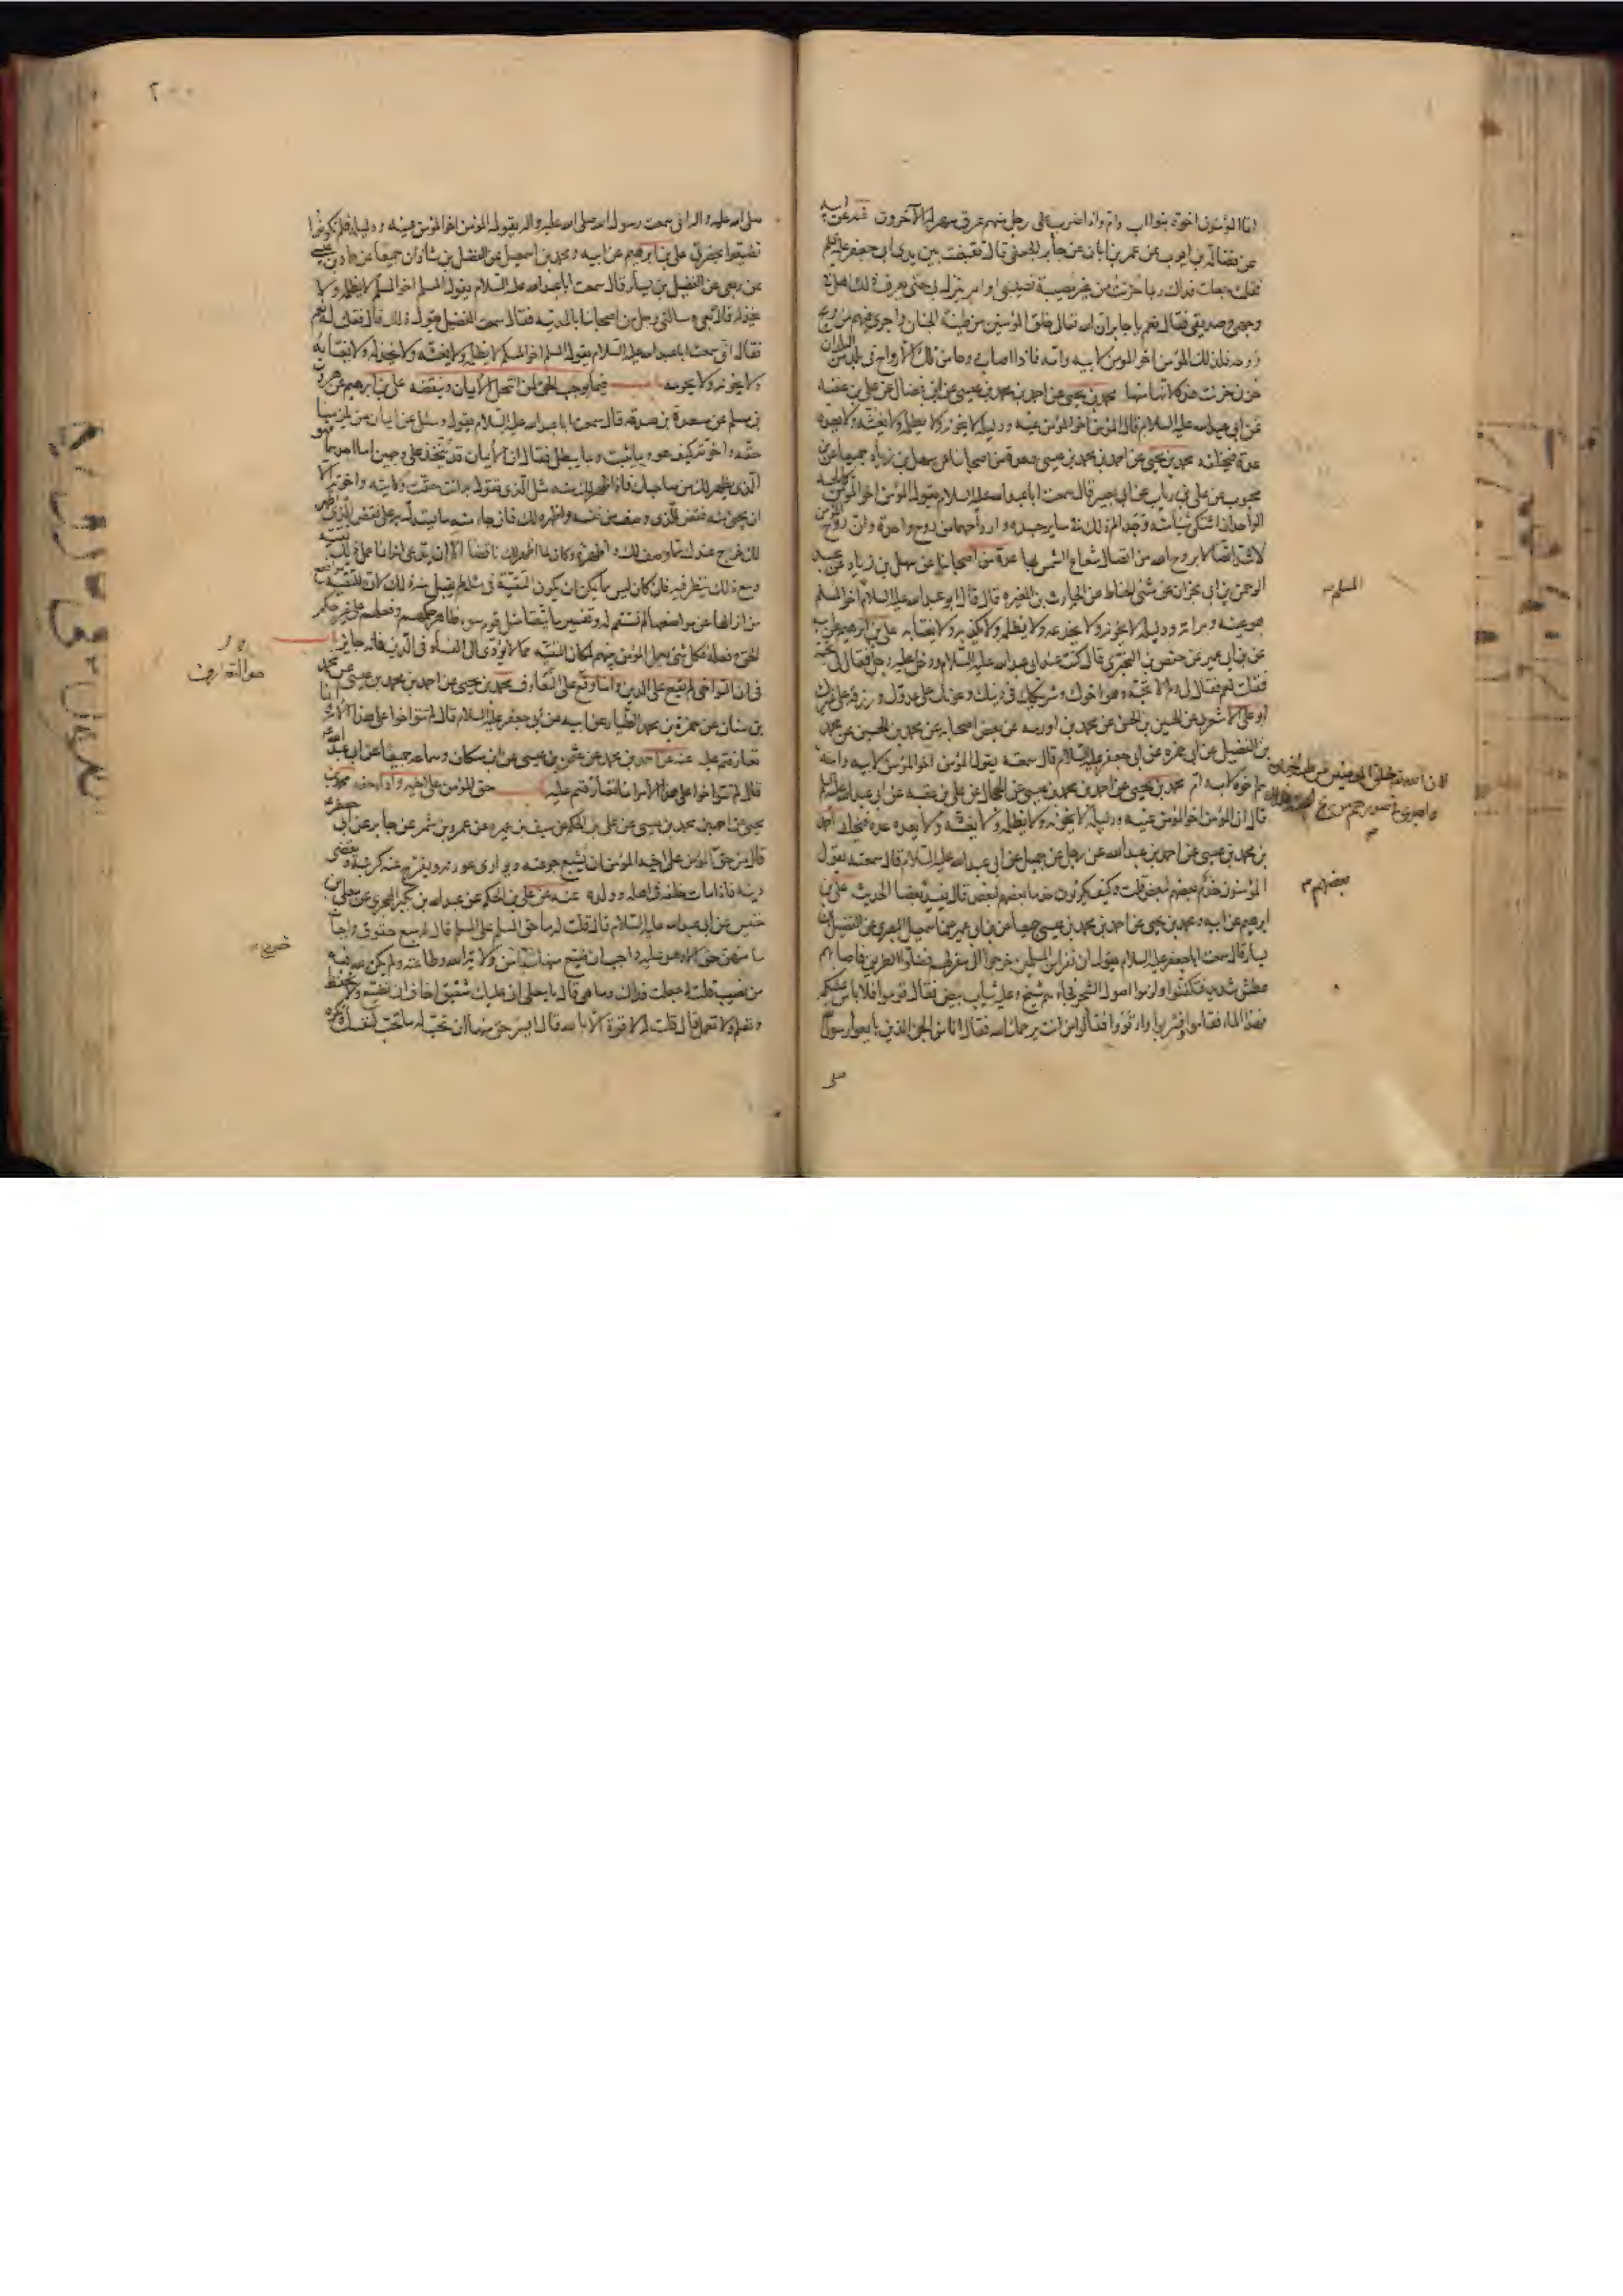 انما المؤمنون اخوة بنو اب وام واذا ضرب على رجل منهم عرق سهر له الآخرون عنه عن ابيه
عن فضالة بن ايوب عن عمر بن ابان عن جابر الجعفي قال تقبضت بين يدي ابي جعفر عليه السلام
فقلت جعلت فداك ربما حزنت من غير مصيبة تصيبني او امر ينزل بي حتى يعرف ذلك اهلي في
وجهي وصديقي فقال نعم يا جابر ان الله تعالى خلق المؤمنين من طينة الجنان واجرى فيهم من ريح
روحه فلذلك المؤمن اخو المؤمن لابيه وامه فاذا اصاب روحا من تلك الارواح في بلد من البلدان
حزن حزنت هذه لانها منها محمد بن يحيى عن احمد بن محمد بن عيسى عن ابن فضال عن علي بن عقبه
عن ابي عبد الله عليه السلام قال المؤمن اخو المؤمن عينه ودليله لا يخونه ولا يظلمه ولا يغشه ولا يعده
عدة فيخلفه محمد بن يحيى عن احمد بن محمد بن عيسى وعدة من اصحابنا عن سهل بن زياد جميعا عن ابن
محبوب عن علي بن رياب عن ابي بصير قال سمعت ابا عبد الله عليه السلام يقول المؤمن اخو المؤمن كالجسد
الواحد ان اشتكى شيئا منه وجد الم ذلك في ساير جسده وارواحهما من روح واحدة وان روح المؤمن
لاشد اتصالا بروح الله من اتصال شعاع الشمس بها عدة من اصحابنا عن سهل بن زياد عن عبد
الرحمن بن ابي نجران عن مثنى الحناط عن الحارث بن المغيره قال قال ابو عبد الله عليه السلام اخو المسلم
المسلم
هو عينه ومراته ودليله لا يخونه ولا يخدعه ولا يظلمه ولا يكذبه ولا يغتابه علي بن ابرهيم عن ابيه
عن ابن ابي عمير عن حفص بن البختري قال كنت عند ابي عبد الله عليه السلام ودخل عليه رجل فقال لي تحبه
فقلت نعم فقال لي ولم لا تحبه وهو اخوك وشريكك في دينك وعونك على عدوك ورزقه على غيرك
ابو علي الاشعري عن الحسين بن الحسن عن محمد بن اورمه عن بعض اصحابه عن محمد بن الحسين عن محمد
بن الفضيل عن ابي حمزه عن ابي جعفر عليه السلام قال سمعته يقول المؤمن اخو المؤمن لابيه وامه
لان الله خلق المؤمنين من طينة الجنان
واجرى في صورهم من ريح
هم اخوة لاب وام محمد بن يحيى عن احمد بن محمد بن عيسى عن الحجال عن علي بن عقبه عن ابي عبد الله عليه السلام
قال ان المؤمن اخو المؤمن عينه ودليله لا يخونه ولا يظلمه ولا يغشه ولا يعده عدة فيخلفه احمد
بن محمد بن عيسى عن احمد بن عبد الله عن رجل عن جميل عن ابي عبد الله عليه السلام قال سمعته يقول
المؤمنون خدم بعضهم لبعض قلت وكيف يكونون خدما بعضهم لبعض قال يفيد بعضا الحديث علي بن
بعضهم
ابرهيم عن ابيه ومحمد بن يحيى عن احمد بن محمد بن عيسى جميعا عن ابن ابي عمير عن اسمعيل البصري عن الفضيل بن
يسار قال سمعت ابا جعفر عليه السلام يقول ان نفرا من المسلمين خرجوا الى سفر لهم فضلوا الطريق فاصابهم
عطش شديد فتكفنوا ولزموا اصول الشجر فجاءهم شيخ وعليه ثياب بيض فقال قوموا فلا باس عليكم
فهذا الماء فقاموا وشربوا وارتووا فقالوا من انت يرحمك الله فقال انا من الجن الذين بايعوا رسول
صلى
٢٠٠
صلى الله عليه واله اني سمعت رسول الله صلى الله عليه واله يقول المؤمن اخو المؤمن عينه ودليله فلم تكونوا
تضيعوا بحضرتي علي بن ابرهيم عن ابيه ومحمد بن اسمعيل عن الفضل بن شاذان جميعا عن حماد بن عيسى
عن ربعي عن الفضيل بن يسار قال سمعت ابا عبد الله عليه السلام يقول المسلم اخو المسلم لا يظلمه ولا
يخذله قال ربعي وسالني رجل من اصحابنا بالمدينه فقال سمعت الفضيل يقول ذلك قال فقلت له نعم
فقال اني سمعت ابا عبد الله عليه السلام يقول المسلم اخو المسلم لا يظلمه ولا يغشه ولا يخذله ولا يغتابه
ولا يخونه ولا يحرمه باب فيما يوجب الحق لمن انتحل الايمان وينقضه علي بن ابرهيم عن هرون
بن مسلم عن مسعدة بن صدقه قال سمعت ابا عبد الله عليه السلام يقول وسئل عن ايمان من يلزمنا
حقه واخوته كيف هو وبما يثبت وبما يبطل فقال ان الايمان قد يتخذ على وجهين اما احدهما فهو
الذي يظهر لك من صاحبك فاذا ظهر لك منه مثل الذي تقول به انت حقت ولايته واخوته الا
ان يجيء منه نقض للذي وصف من نفسه واظهره لك فان جاء منه ما يستدل به على نقض الذي اظهر
لك خرج عندك مما وصف لك واظهره وكان لما اظهر لك ناقضا الا ان يدعي انه انما عمل ذلك تقية
ومع ذلك ينظر فيه فان كان ليس مما يمكن ان يكون التقية في مثله لم يقبل منه ذلك لان للتقية مواضع
من ازالها عن مواضعها لم تستقم له وتفسير ما يتقا مثل قوم سوء ظاهر حكمهم وفعلهم على غير حكم
الحق وفعله فكل شيء يعمل المؤمن بينهم لمكان التقيه مما لا يؤدي الى الفساد في الدين فانه جايز باب
هو التعارف
في ان التواخي لم يقع على الدين وانما وقع على التعارف محمد بن يحيى عن احمد بن محمد بن عيسى عن محمد
بن سنان عن حمزة بن محمد الطيار عن ابيه عن ابي جعفر عليه السلام قال لم تتواخوا على هذا الامر انما
تعارفتم عليه عنه عن احمد بن محمد عن عثمن بن عيسى عن ابن مسكان وسماعه جميعا عن ابي عبد الله
قال لم تتواخوا على هذا الامر انما تعارفتم عليه باب حق المؤمن على اخيه واداء حقه محمد بن
يحيى عن احمد بن محمد بن عيسى عن علي بن الحكم عن سيف بن عميره عن عمرو بن شمر عن جابر عن ابي جعفر
قال من حق المؤمن على اخيه المؤمن ان يشبع جوعته ويواري عورته ويفرج عنه كربته ويقضي
دينه فاذا مات خلفه في اهله وولده عنه عن علي بن الحكم عن عبد الله بن بكير الهجري عن معلى بن
خنيس عن ابي عبد الله عليه السلام قال قلت له ما حق المسلم على المسلم قال له سبع حقوق واجبات
ما منهن حق الا وهو عليه واجب ان ضيع منها شيئا خرج من ولاية الله وطاعته ولم يكن لله فيه
من نصيب قلت له جعلت فداك وما هي قال يا معلى اني عليك شفيق اخاف ان تضيع ولا تحفظ
وتعلم ولا تعمل قال قلت له لا قوة الا بالله قال ايسر حق منها ان تحب له ما تحب لنفسك وتكره